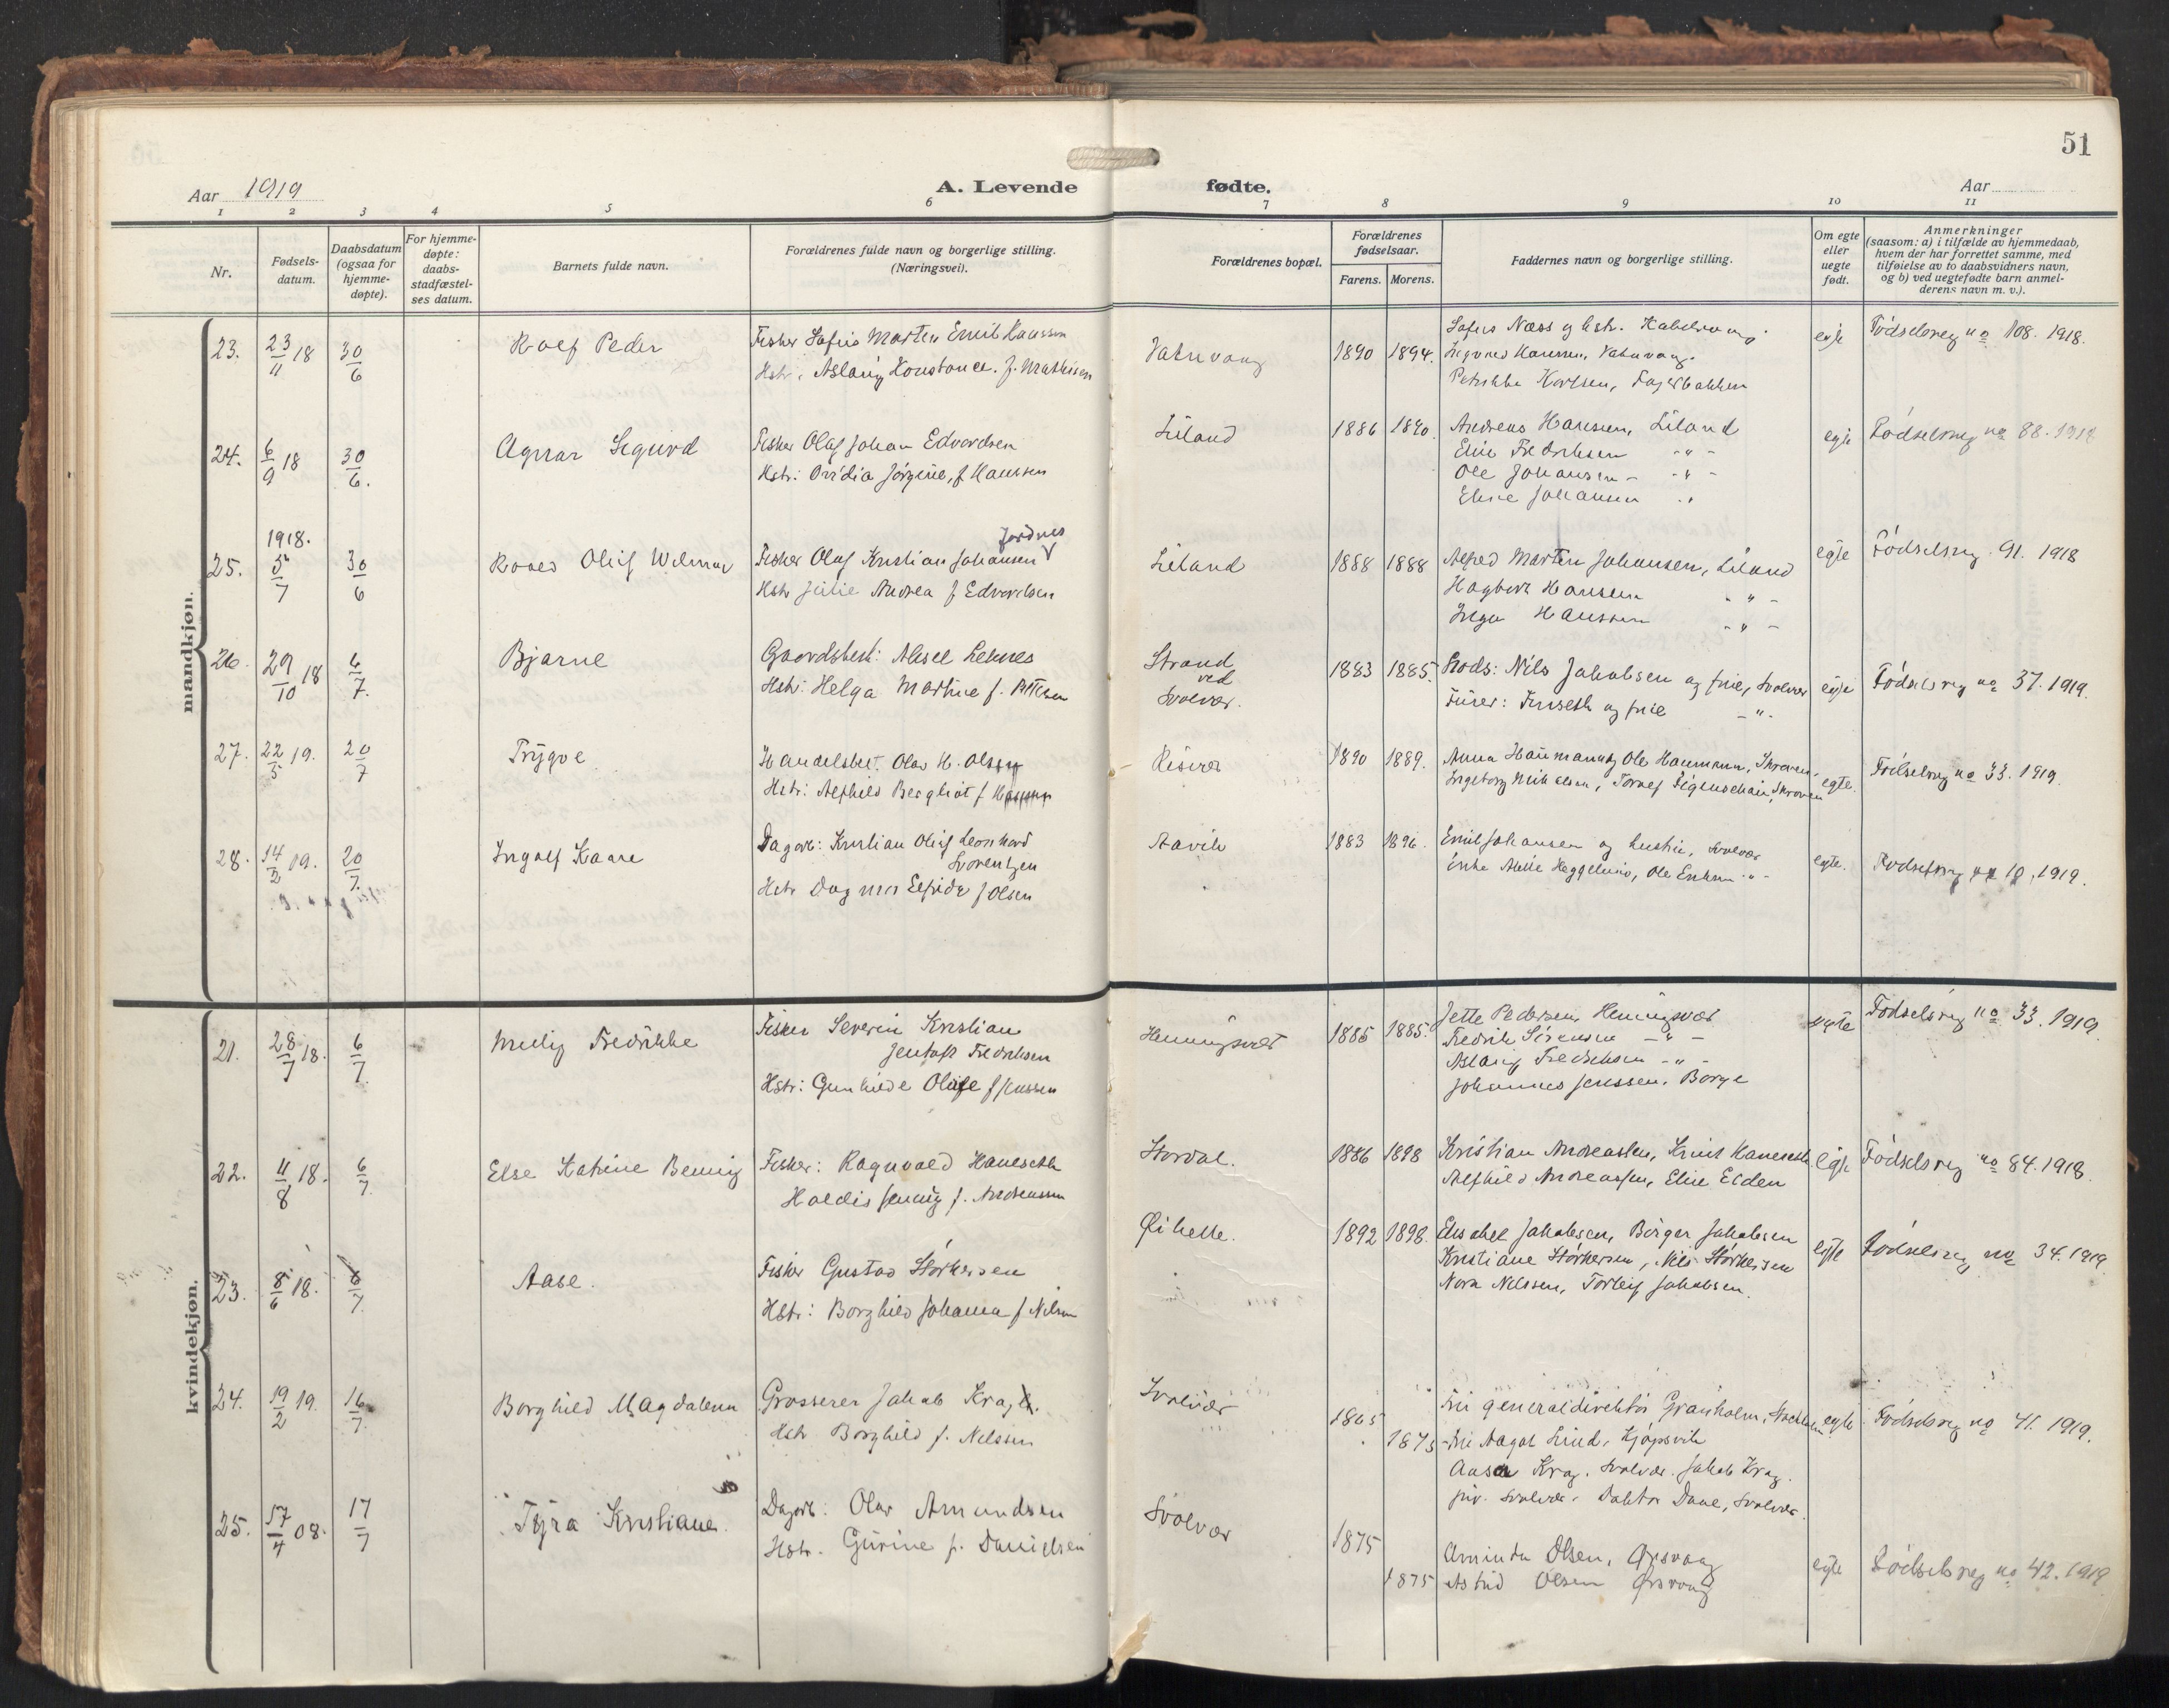 51
Aar 1919
A. Levende fødte.
Aar
1 2 3 4 5 6 7 8 9 10 11
Nr.
Fødsels-
datum.
Daabsdatum
(ogsaa for
hjemme-
døpte).
For hjemme-
døpte:
daabs-
stadfæstel-
ses datum.
Barnets fulde navn.
Forældrenes fulde navn og borgerlige stilling.
(Næringsvei).
Forældrenes bopæl.
Forældrenes
fødselsaar.
Farens. Morens.
Faddernes navn og borgerlige stilling.
Om egte
eller
uegte
født.
Anmerkninger
(saasom: a) i tilfælde av hjemmedaab,
hvem der har forrettet samme, med
tilføielse av to daabsvidners navn,
og b) ved uegtefødte barn anmel-
derens navn m. v.).
mandkjøn.
23. 23/11 18 30/6 Rolf Peder
Fisker Sofus Marten Emil Hanssen
Hstr. Aslaug Konstance f. Mathisen
Vatnvaag 1890 1894.
Sofus Næss og hstr. Kabelvaag
Sigvard Hanssen, Vatnvaag.
Petrikke Karlsen, Fagerbakken
egte Fødselsreg no 108. 1918.
24. 6/9 18 30/6. Agnar Sigurd
Fisker Olaf Johan Edvardsen
Hstr: Ovidia Jørgine, f Hanssen
Liland 1886 1890.
Andreas Hanssen, Liland
Eline Fredriksen - " -
Ole Johansen - - " -
Elise Johansen "
egte Fødselsreg no 88. 1918
25. 1918. 5/7 30/6 Roald Oluf Wilmar
Jordnes
Fisker Olaf Kristian Johansen V
Hstr Julie Andrea f Edvardsen
Liland 1888 1888
Alfred Martin Johansen, Liland
Hagbart Hansen - " -
Inga Hanssen - " -
egte Fødselsreg. 91. 1918
26. 29/10 18 6/7. Bjarne
Gaardsbest: Aksel Leknes
Hstr: Helga Martine f. Pettersen
Strand
ved
Svolvær.
1883 1885.
Nils Jakobsen og frue, Svolvær
Finseth og frue - " -
egte Fødselsreg no 37. 1919.
27. 22/5 19. 20/7 Trygve
Handelsbest. Olav H. Olsen
Hstr: Alfhild Bergliot f Hanssen
Risvær 1890 1889.
Anna Haumann, Ole Haumann, Skroven.
Ingeborg Mikalsen, Torleif Sigenschau, Skroven
egte. Fødselsreg no 33. 1919.
28. 14/2 19. 20/7. Ingolf Kaare
Dagarb: Kristian Oluf Leonhard
Sorentzen
Hstr Dagmar Elfrida f Olsen
Aavik 1883 1896.
Emil Johansen og hustru, Svolvær
Enke Aldie Heggelund, Ole Eriksen - " -
egte. Fødselsreg no 10. 1919.
kvindekjøn.
21. 28/7 18. 6/7. Meilig Fredrikke
Fisker Severin Kristian
Jentoft Fredriksen
Hstr: Gunhilde Olufe f Jenssen
Henningsvær 1885 1885.
Jette Pedersen, Henningsvær
Fredrik Sørensen - " -
Aslaug Fredriksen - " -
Johannes Jenssen, Borge
egte Fødselsreg no 33. 1919.
22. 11/8 18. 6/7 Else Katrine Benny
Fisker: Ragnvald Haneseth
Haldis Jenny f. Andreassen
Stordal. 1886 1898
Kristian Andreassen, Knut Haneseth
Alfhild Andreassen, Eline Eiden
egte Fødselsreg no 84. 1918.
23. 8/6 18. 6/7. Aase.
Fisker Gustav Størkersen
Hstr: Borghild Johanna f Nilsen
Øihelle. 1892 1898.
Elisabet Jakobsen, Birger Jakobsen
Kristiane Størkersen, Nils Størkersen
Nora Nilssen, Torleif Jakobsen.
egte Fødselsreg no 34. 1919
24. 19/2 19. 16/7. Borghild Magdalena
Grosserer Jakob Krag.
Hstr Borghild f. Nilssen
Svolvær 1865 1873
Fru generaldirektør Granholm, Stockholm
Fru Aagot Lind, Kjøpsvik
Aasa Krag. Svolvær. Jakob Krag.
jun. Svolvær. Doktor Daae, Svolvær.
egte Fødselsreg no 41. 1919.
25. 17/4 08. 17/7 Tyra Kristiane.
Dagarb: Olav Amundsen
Hstr. Gurine f. Danielsen
Svolvær 1875 1875
Aminda Olsen, Ørsvaag
Astrid Olsen Ørsvaag
egte Fødselsreg no 42. 1919